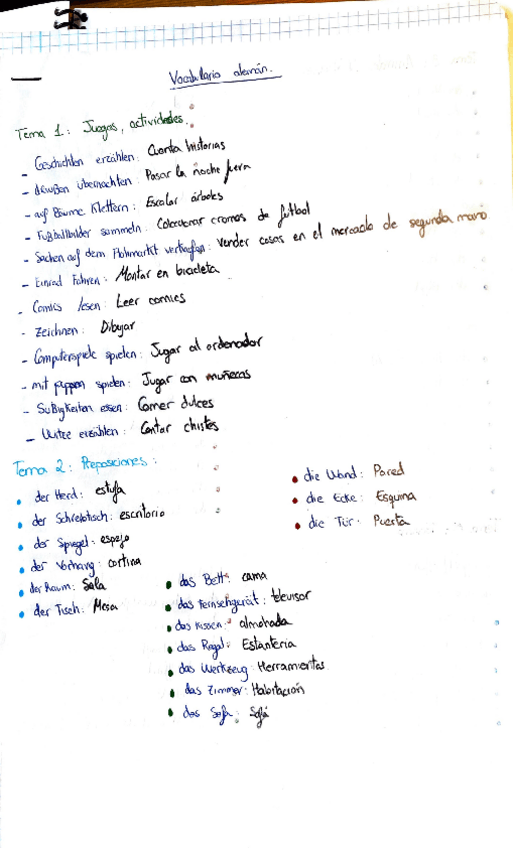 Vocabulario alemán.
Tema 1: Juegos, actividades.
- Geschichten erzählen: Cuenta historias
- draußen übernachten: Pasar la noche fuera
- auf Bäume klettern: Escalar árboles
- Fußballbilder sammeln: Coleccionar cromos de futbol
- Sachen auf dem Flohmarkt verkaufen: Vender cosas en el mercado de segunda mano
- Einrad fahren: Montar en bicicleta
- Comics lesen: Leer comics
- Zeichnen: Dibujar
- Computerspiele spielen: Jugar al ordenador
- mit puppen spielen: Jugar con muñecas
- Süßigkeiten essen: Comer dulces
- Witze erzählen: Contar chistes
Tema 2: Preposiciones:
• der Herd: estufa
• der Schreibtisch: escritorio
• der Spiegel: espejo
• der Vorhang: cortina
• der Raum: Sala
• der Tisch: Mesa
• die Wand: Pared
• die Ecke: Esquina
• die Tür: Puerta
• das Bett: cama
• das Fernsehgerät: televisor
• das Kissen: almohada
• das Regal: Estantería
• das Werkzeug: Herramientas
• das Zimmer: Habitación
• das Sofa: Sofá